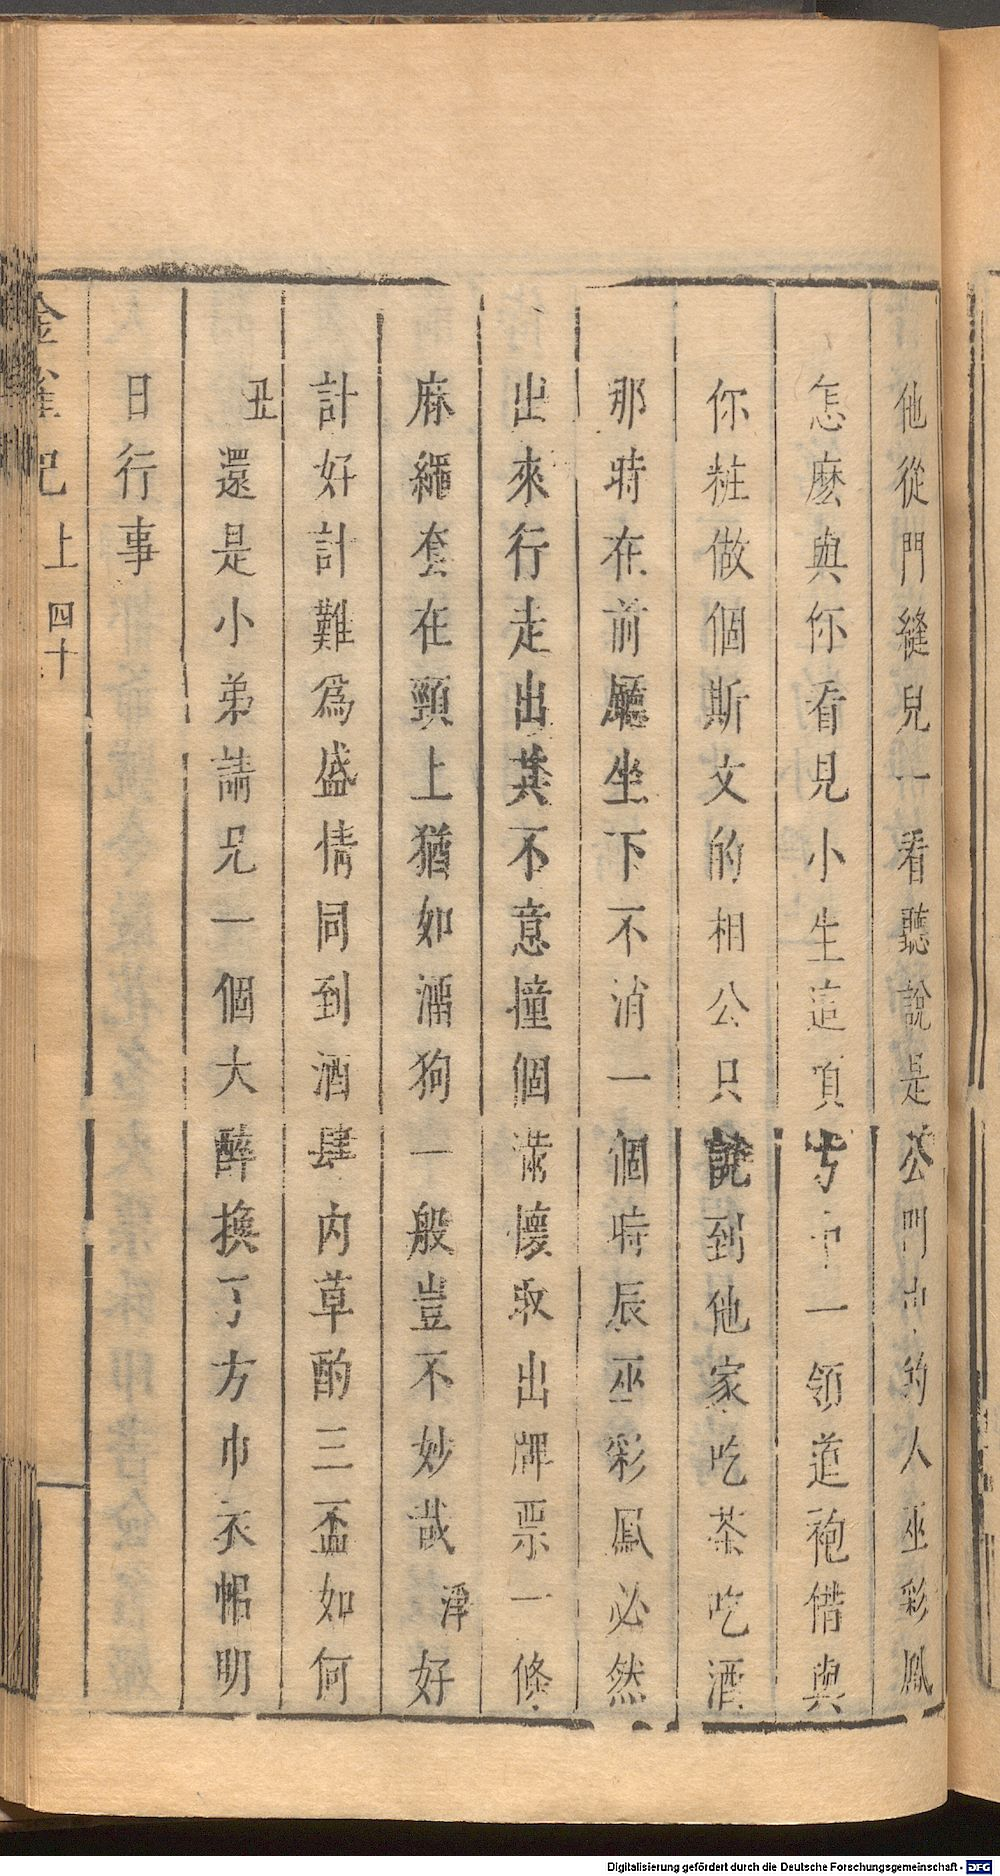 他從門縫兒一看聽說是公門出的人巫彩鳳
怎麽與你看見小生這項方巾一領道袍借與
你粧做個斯文的相公只說到他家吃茶吃酒
那時在前廳坐下不消一個時辰巫彩鳳必然
出來行走出其不意撞個滿懷取出牌票一條
麻繩套在頸上猶如酒狗一般豈不妙哉 淨好
計好計難為盛情同到酒肆內草酌三盃如何
丑還是小弟請兄一個大醉換了方巾衣帽明
日行事
金雀記 上 四十
Digitalisierung gefördert durch die Deutsche Forschungsgemeinschaft - DFG